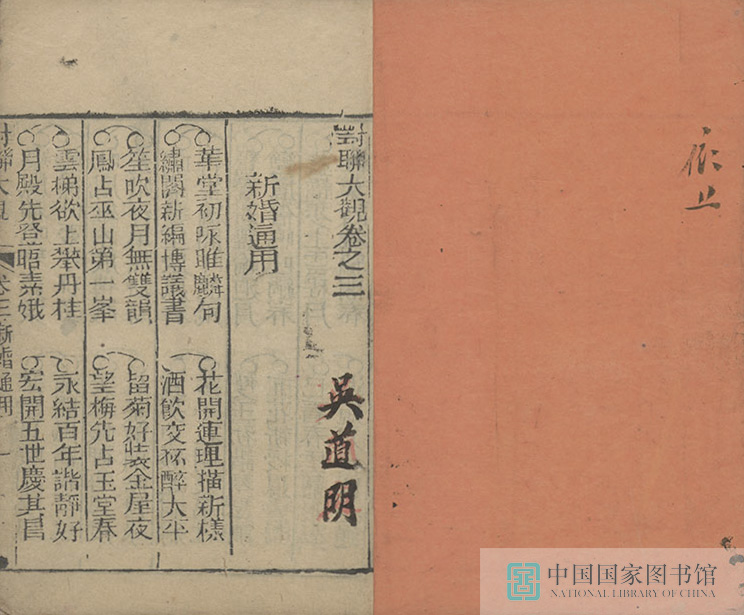 對聯大觀卷之三
吳道明
新婚通用
華堂初咏雎麟句 花開連理描新樣
繡閣新編博議書 酒飲交杯醉大平
笙吹夜月無雙韻 留菊好裝金屋夜
鳳占巫山第一峯 望梅先占玉堂春
雲梯欲上攀丹桂 永結百年諧靜好
月殿先登晤素娥 宏開五世慶其昌
對聯大觀 卷三 新婚通用 一
中国国家图书馆
NATIONAL LIBRARY OF CHINA